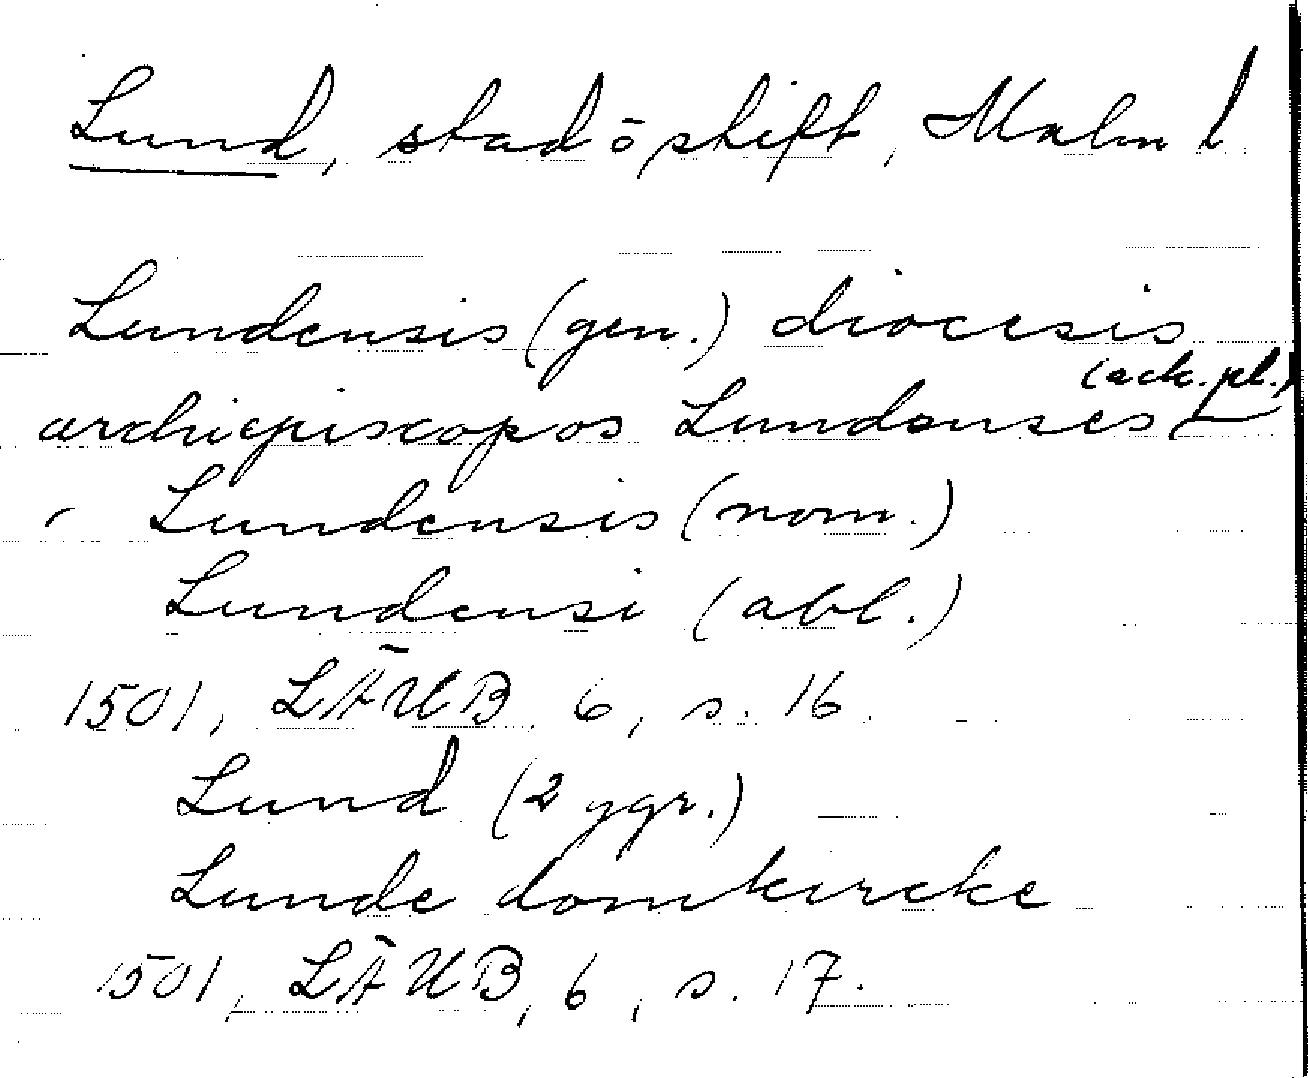 Lund, stad ö stift, Malm l
Lundensis (gen.) diocesis
(ack. pl.)
archiepiscopos Lundenses
Lundensis (nom.)
Lundensi (abl.)
1501, LÄUB 6, s. 16
Lund (2 ggr.)
Lunde domkircke
1501, LÄUB, 6, s. 17.